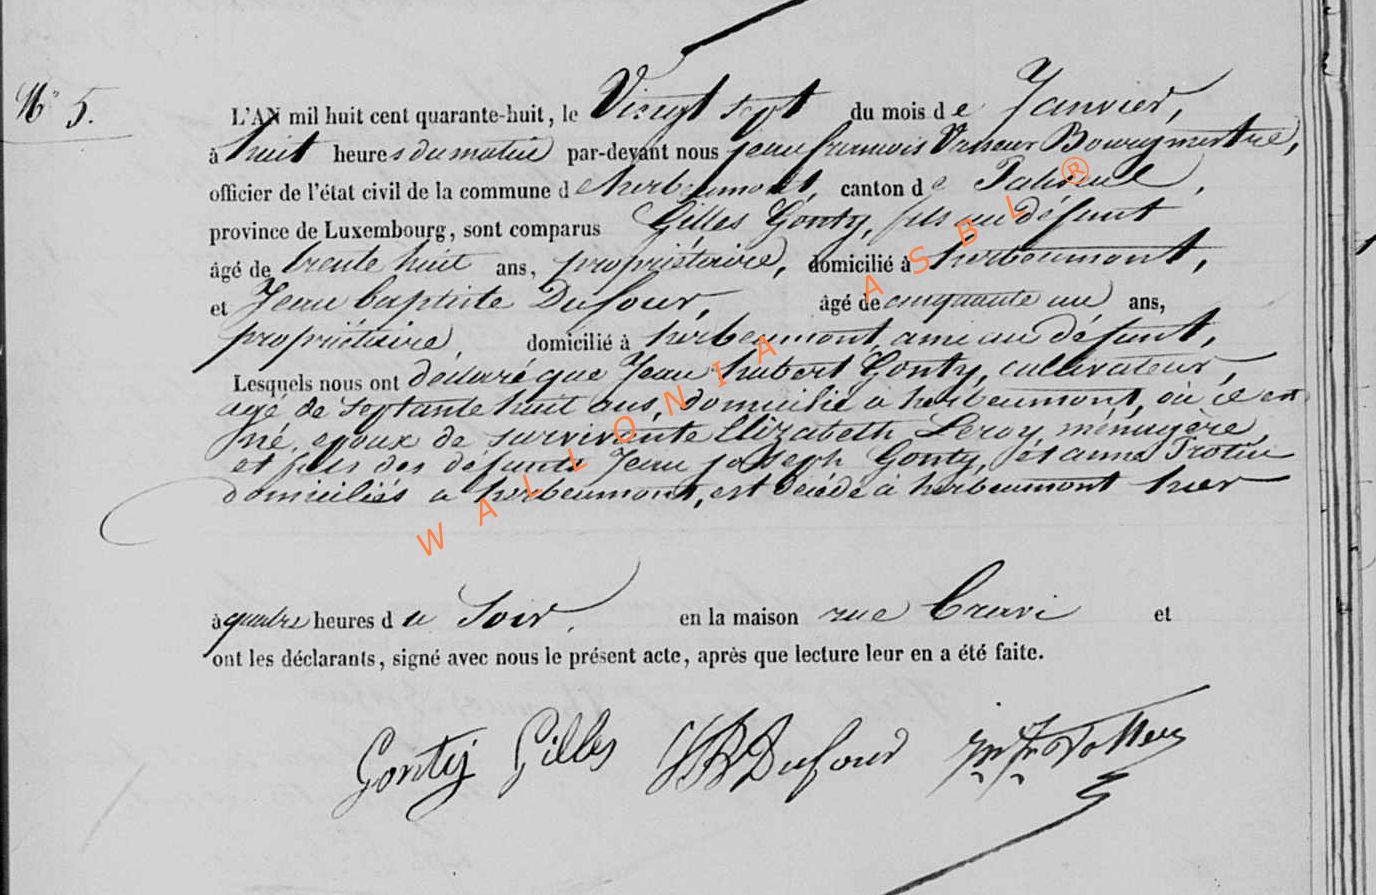 N° 5.
L'AN mil huit cent quarante-huit, le Vingt sept du mois de Janvier,
à huit heures du matin par-devant nous jean francois Bourgmestre,
officier de l'état civil de la commune d'herbeumont, canton de Paliseul,
province de Luxembourg, sont comparus Gilles Gonty, fils au défunt
âgé de trente huit ans, propriétaire, domicilié à herbeumont,
et Jean baptiste Dufour, âgé de cinquante un ans,
propriétaire, domicilié à herbeumont, ami au défunt,
Lesquels nous ont déclaré que Jean hubert Gonty, cultivateur,
agé de Septante huit ans, domicilié a herbeumont, où il est
né, epoux de survivante Elizabeth Leroy, ménagère,
et fils des défunts Jean joseph Gonty, et anne Trotin
domiciliés a herbeumont, est décédé à herbeumont hier
à quatre heures du Soir, en la maison rue et
ont les déclarants, signé avec nous le présent acte, après que lecture leur en a été faite.
Gonty Gilles JB Dufour
WALLONIA ASBL ®